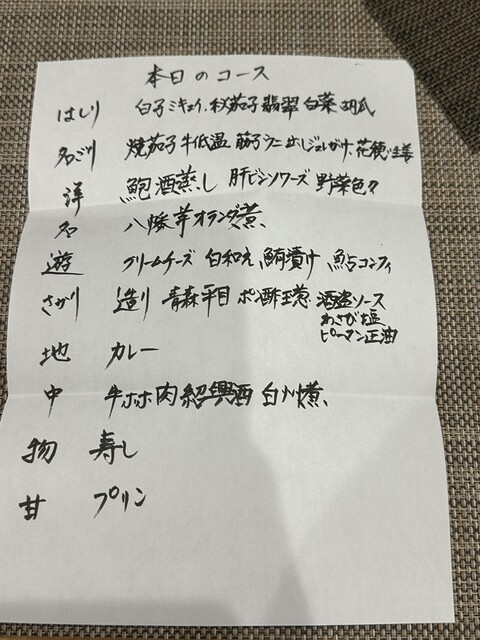 本日のコース
はしり 白子ミキュイ、秋茄子翡翠 白菜 胡瓜
名ごり 焼茄子 牛低温 筋子 ウニ 出しジュレがけ、花穂 生姜
洋 鮑酒蒸し 肝ビンソワーズ 野菜色々
名 八幡芋オランダ煮、
遊 クリームチーズ 白和え 鮪漬け 鮎コンフィ
さかり 造り 青森平目 ポン酢 玉葱 酒盗ソース
わさび塩
ピーマン正油
地 カレー
中 牛ホホ肉 紹興酒 白ハ煮、
物 寿し
甘 プリン